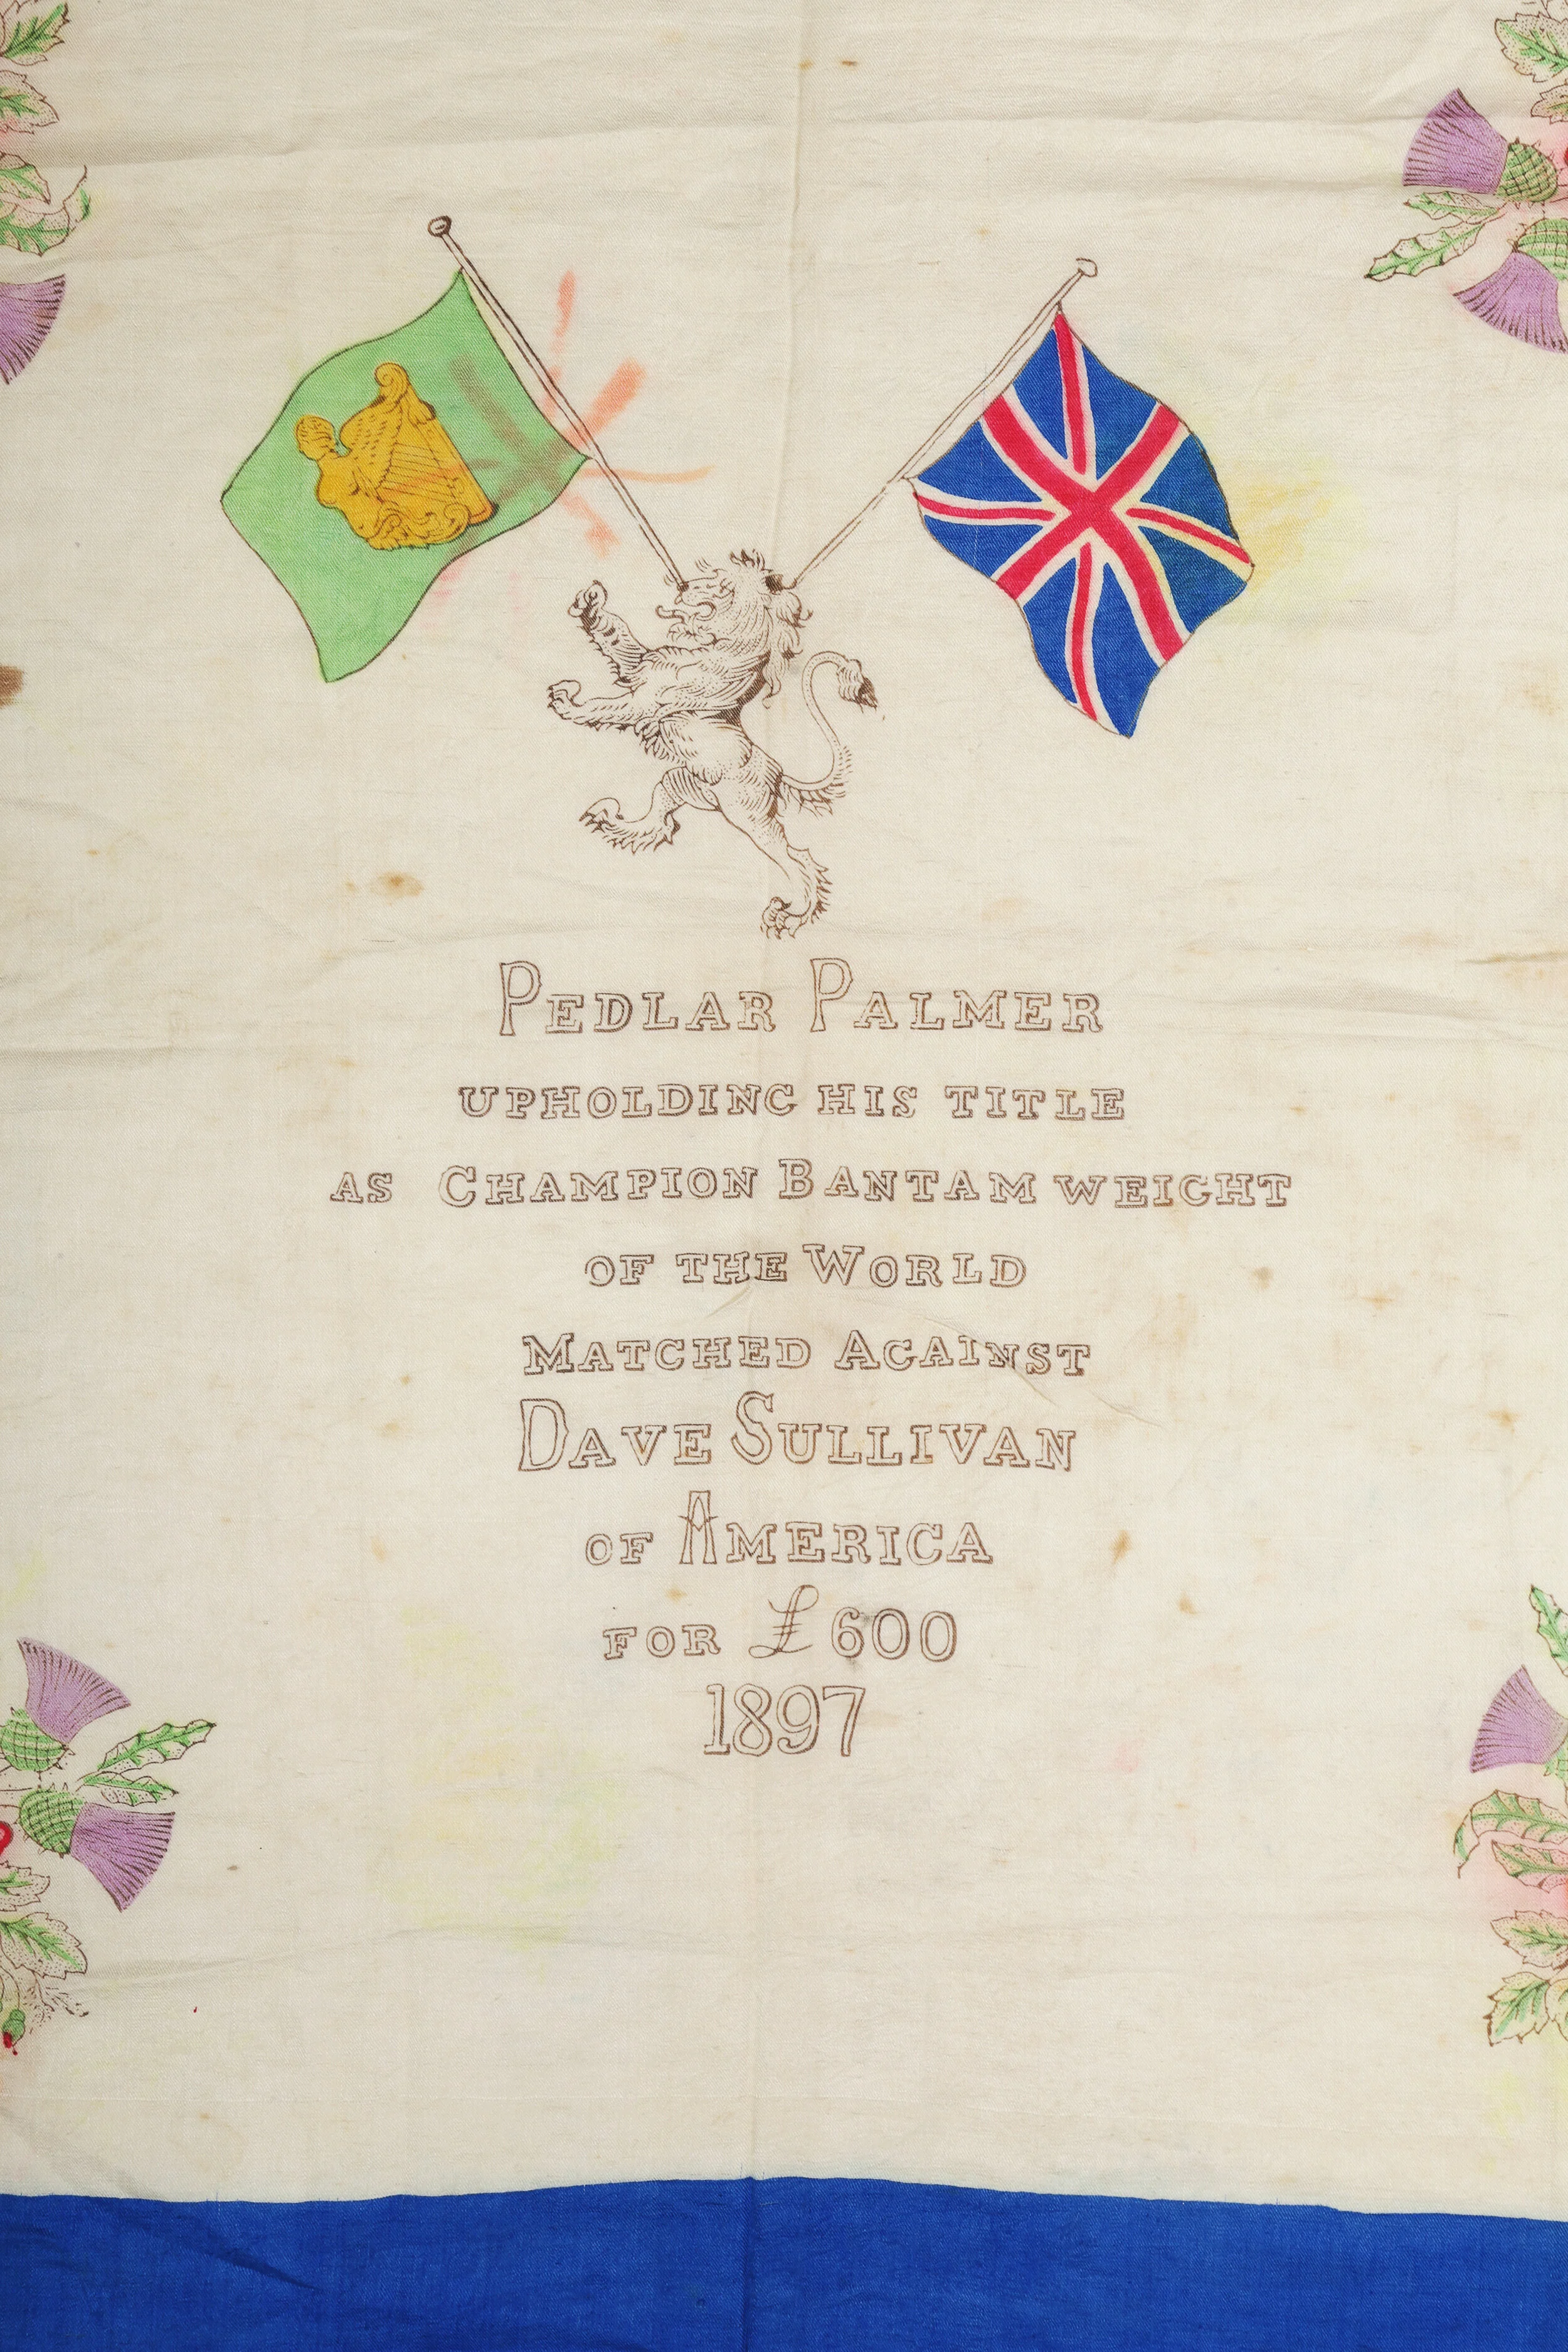 PEDLAR PALMER
UPHOLDING HIS TITLE
AS CHAMPION BANTAM WEIGHT
OF THE WORLD
MATCHED AGAINST
DAVE SULLIVAN
OF AMERICA
FOR £600
1897